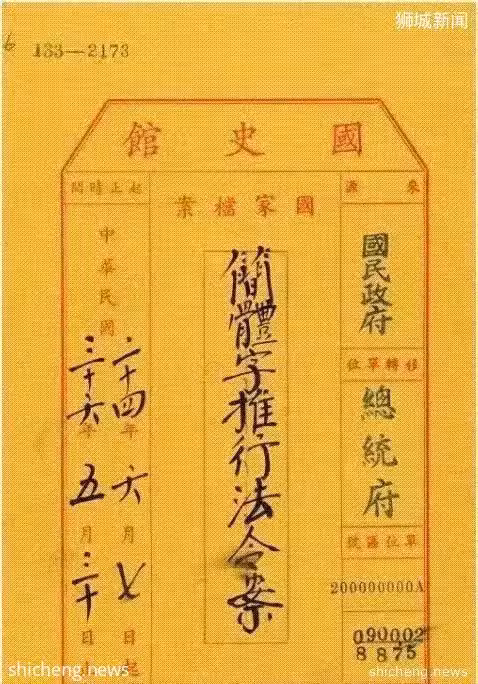 狮城新闻
133—2173
國史館
來源
國民政府
移轉單位
總統府
單位區號
200000000A
090002
8875
國家檔案
簡體字推行法令案
起止時間
中華民國
二十四年六月七日起
三十六年五月三十日
shicheng.news
shicheng.news